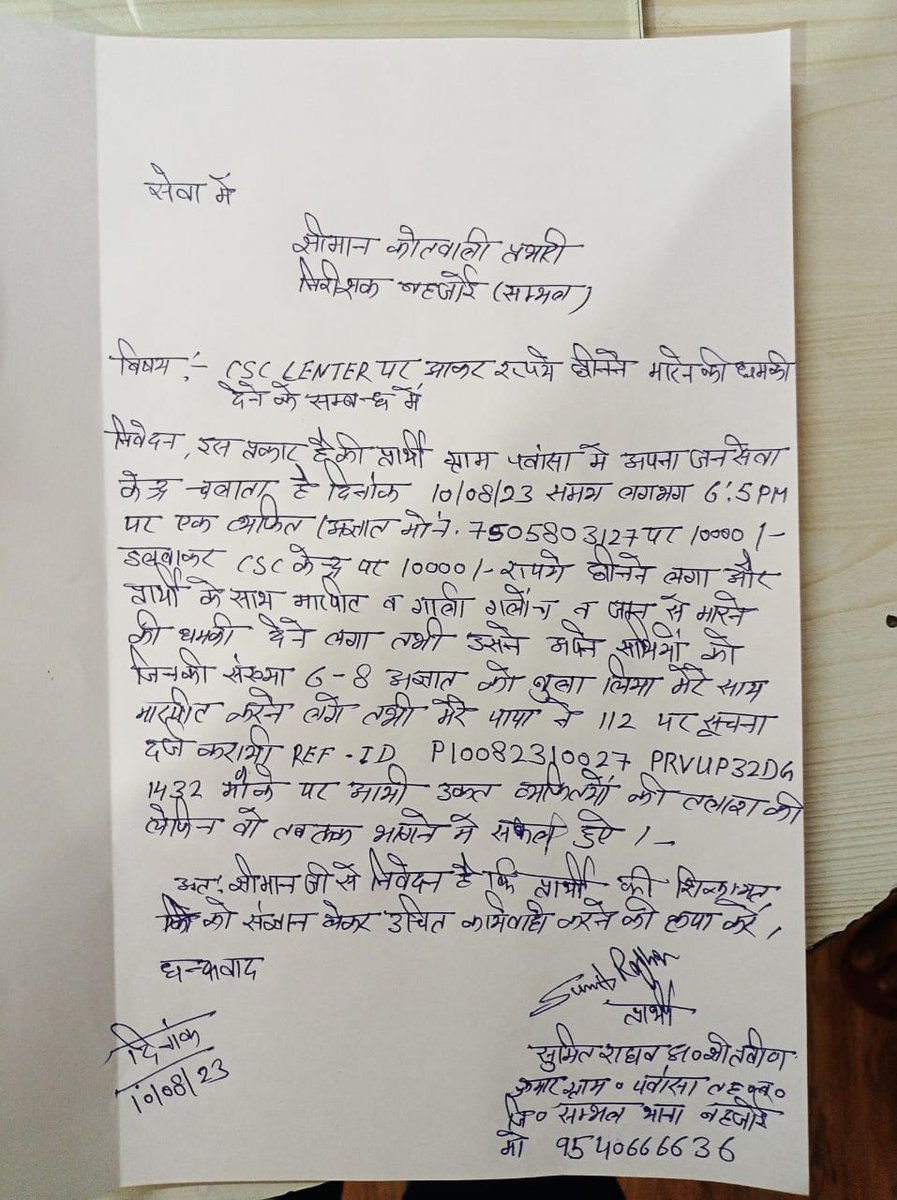 सेवा में
श्रीमान कोतवाली प्रभारी
निरीक्षक बहजोई (सम्भल)
विषय :- CSC CENTER पर आकर रुपये छीनने मारने की धमकी
देने के सम्बन्ध में
निवेदन, इस प्रकार है की प्रार्थी ग्राम पवांसा में अपना जन सेवा
केन्द्र चलाता है दिनांक 10/08/23 समय लगभग 6:5 PM
पर एक व्यक्ति (अज्ञात मो.नं. 7505803127 पर 10000/-
डलवाकर CSC केन्द्र पर 10000/- रुपये छीनने लगा और
प्रार्थी के साथ मारपीट व गाली गलौच व जान से मारने
की धमकी देने लगा तभी उसने अपने साथियों को
जिनकी संख्या 6-8 अज्ञात को बुला लिया मेरे साथ
मारपीट करने लगे तभी मेरे पापा ने 112 पर सूचना
दर्ज करायी REF-ID P10082310027 PRVUP32DG
1432 मौके पर आयी उक्त व्यक्तियों की तलाश की
लेकिन वो तब तक भागने में सफल हुए ।-
अतः श्रीमान जी से निवेदन है कि प्रार्थी की शिकायत
को संज्ञान लेकर उचित कार्यवाही करने की कृपा करें,
धन्यवाद
Sumit Raghav
प्रार्थी
दिनांक
10/08/23
सुमित राघव s/o श्री प्रवीण
कुमार ग्राम० पवांसा
जि० सम्भल थाना बहजोई
मो 9540666636